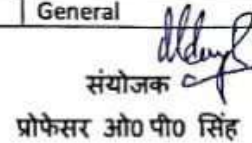 General
संयोजक
प्रोफेसर ओ0 पी0 सिंह